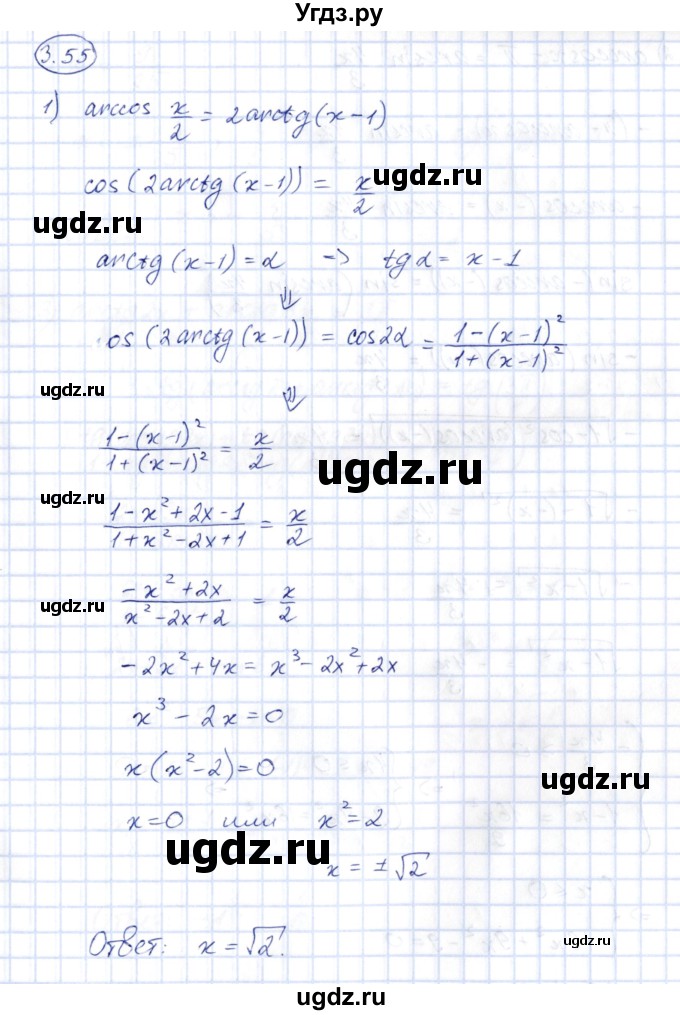 Угдз.ру
3.55
1) arccos x/2 = 2arctg(x-1)
cos(2arctg(x-1)) = x/2
ugdz.ru
ugdz.ru
arctg(x-1) = α -> tgα = x-1
⇓
os(2arctg(x-1)) = cos2α = (1-(x-1)²)/(1+(x-1)²)
ugdz.ru
⇓
(1-(x-1)²)/(1+(x-1)²) = x/2
ugdz.ru
ugdz.ru
(1-x²+2x-1)/(1+x²-2x+1) = x/2
ugdz.ru
(-x²+2x)/(x²-2x+2) = x/2
-2x²+4x = x³-2x²+2x
x³-2x=0
x(x²-2)=0
ugdz.ru
x=0 или x²=2
ugdz.ru
x = ±√2
Ответ: x = √2.
ugdz.ru
ugdz.ru